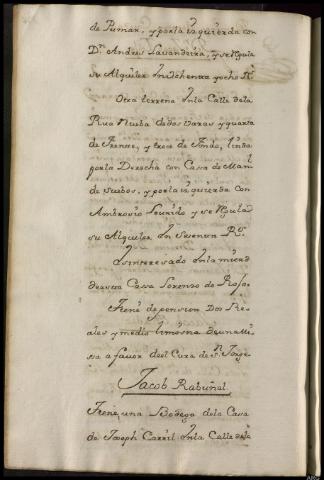 de Pumar, y por la izquierda con
Dn. Andres Lavandeira, y se Regula
su Alquiler En Ochenta y ocho Rs.
Otra terrena En la Calle de la
Rua Nueba de dos Varas y quarta
de Frente, y trece de Fondo, linda
por la Derecha con Casa de Man.l
de Subos, y por la izquierda con
Ambrosio Lourido y se Regula
su Alquiler En Sesenta Rs.
Es interesado En la mitad
de esta Casa Lorenzo de
Tiene de pension Dos Rea-
les y medio limosna de una Mi-
sa a favor del Cura de Sn. Jorge
Jacob Rabuñal
Tiene, una Bodega de la Casa
de Joseph Carril En la Calle de la